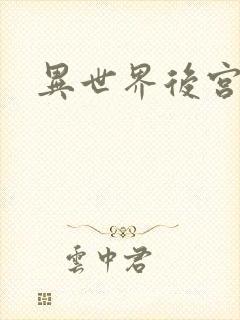 異世界後宮
雲中君